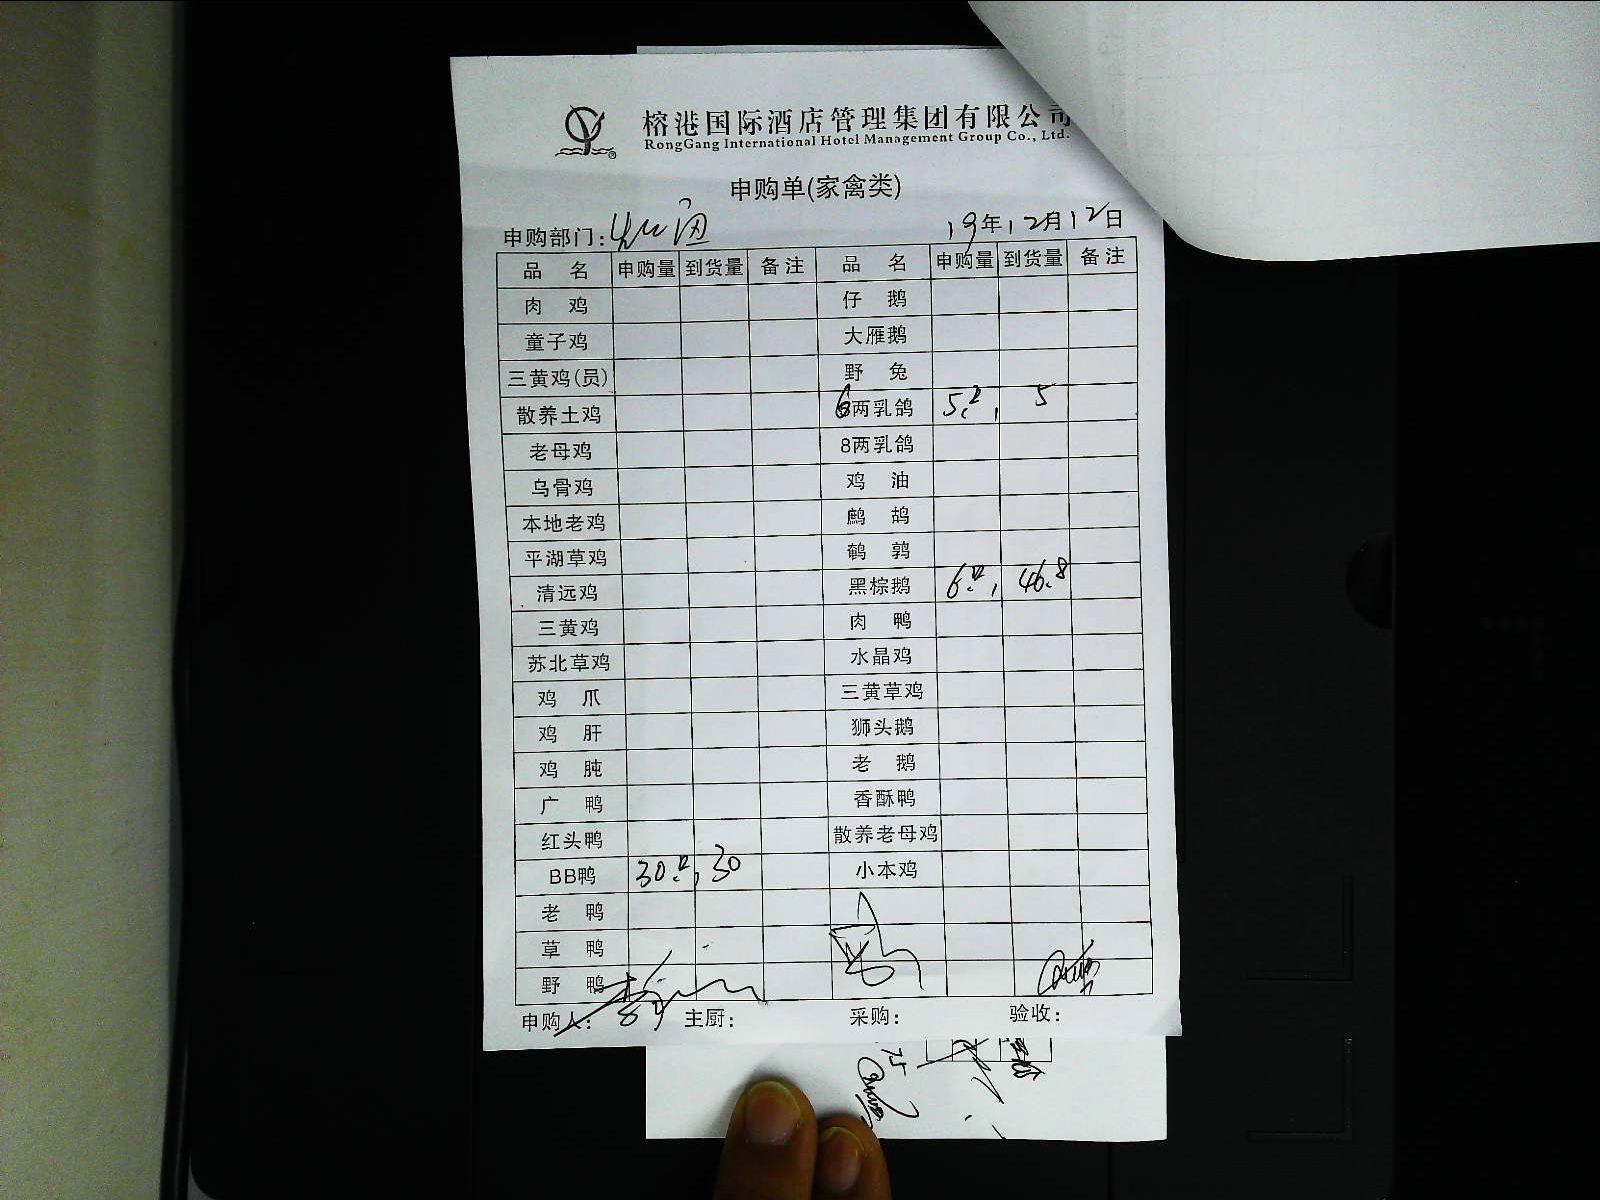 榕港国际酒店管理集团有限公司
RongGang International Hotel Management Group Co., Ltd.
申购单(家禽类)
申购部门:
19年12月12日
品 名 申购量 到货量 备注 品 名 申购量 到货量 备注
肉 鸡 仔 鹅
童子鸡 大雁鹅
三黄鸡(员) 野 兔
散养土鸡 6两乳鸽 5 5
老母鸡 8两乳鸽
乌骨鸡 鸡 油
本地老鸡 鹧 鸪
平湖草鸡 鹌 鹑
清远鸡 黑棕鹅 6 46.8
三黄鸡 肉 鸭
苏北草鸡 水晶鸡
鸡 爪 三黄草鸡
鸡 肝 狮头鹅
鸡 肫 老 鹅
广 鸭 香酥鸭
红头鸭 散养老母鸡
BB鸭 30 30 小本鸡
老 鸭
草 鸭
野 鸭
申购人: 主厨: 采购: 验收: